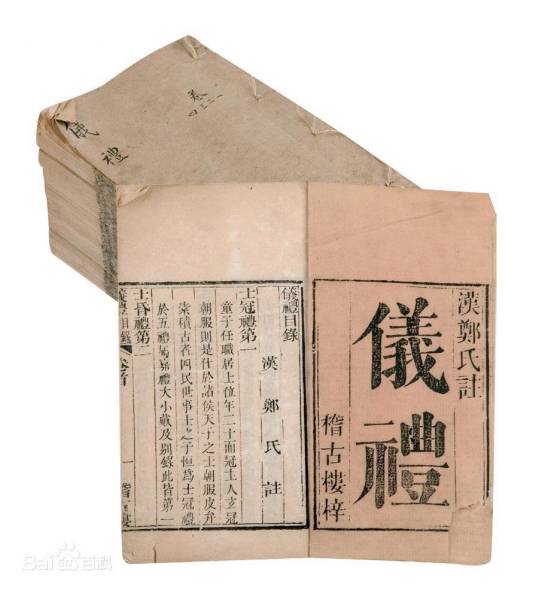 儀禮
卷一二三四
漢鄭氏註
儀禮
稽古樓梓
儀禮目錄
漢鄭氏註
士冠禮第一
童子任職居士位年二十而冠主人玄冠
朝服則是仕於諸侯天子之士朝服皮弁
素積古者四民世事士之子恒爲士冠禮
於五禮屬嘉禮大小戴及別錄此皆第一
士昏禮第二
儀禮目錄 卷首 一 稽古樓
Bai百科